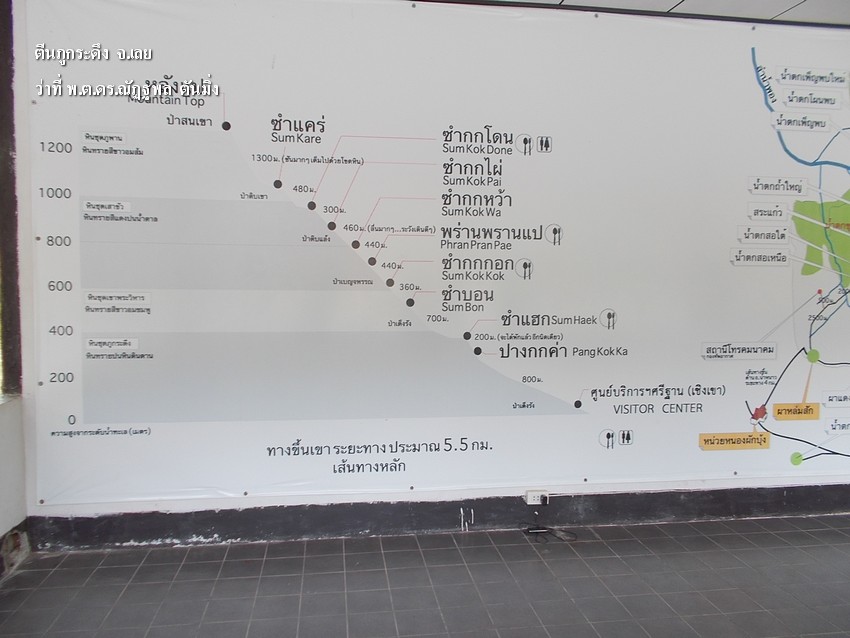 ตีนภูกระดึง จ.เลย
ว่าที่ พ.ต.ดร.ณัฏฐพล ตันมิ่ง
Mountain Top
ป่าสนเขา
ซำแคร่
Sum Kare
1300 ม. (ชันมากๆ เต็มไปด้วยโขดหิน)
ป่าดิบเขา
480 ม.
ซำกกโดน
Sum Kok Done
300 ม.
ซำกกไผ่
Sum Kok Pai
ป่าดิบแล้ง
460 ม. (ลื่นมากๆ...ระวังเดินดีๆ)
ซำกกหว้า
Sum Kok Wa
440 ม.
พร่านพรานแป
Phran Pran Pae
440 ม.
ป่าเบญจพรรณ
ซำกกกอก
Sum Kok Kok
360 ม.
ซำบอน
Sum Bon
ป่าเต็งรัง
700 ม.
ซำแฮก Sum Haek
200 ม. (จะได้พักแล้ว อีกนิดเดียว)
ปางกกค่า Pang Kok Ka
800 ม.
ป่าเต็งรัง
ศูนย์บริการฯศรีฐาน (เชิงเขา)
VISITOR CENTER
1200
1000
800
600
400
200
0
ความสูงจากระดับน้ำทะเล (เมตร)
หินชุดภูพาน
หินทรายสีขาวอมส้ม
หินชุดเสาขัว
หินทรายสีแดงปนน้ำตาล
หินชุดเขาพระวิหาร
หินทรายสีขาวอมชมพู
หินชุดภูกระดึง
หินทรายปนหินดินดาน
ทางขึ้นเขา ระยะทาง ประมาณ 5.5 กม.
เส้นทางหลัก
ลำน้ำพอง
น้ำตกเพ็ญพบใหม่
น้ำตกโผนพบ
น้ำตกเพ็ญพบ
น้ำตกถ้ำใหญ่
สระแก้ว
น้ำตกสอใต้
น้ำตกสอเหนือ
สถานีโทรคมนาคม
กองทัพอากาศ
ผาหล่มสัก
หน่วยหนองผักบุ้ง
ผาแดง